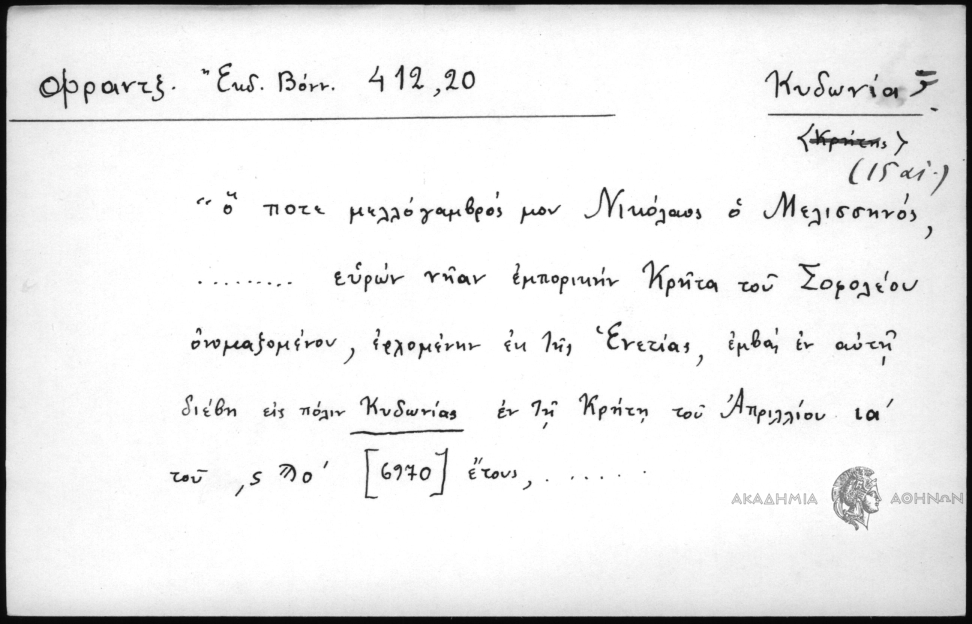 Φραντζ. Ἔκδ. Βόνν. 412,20
Κυδωνία
〈Κρήτης〉
(15 αἰ.)
“ὅ ποτε μελλόγαμβρός μου Νικόλαος ὁ Μελισσηνός,
......... εὑρών νῆαν ἐμπορικήν Κρῆτα τοῦ Σοφολέου
ὀνομαζομένου, ἐρχομένην ἐκ τῆς Ἑνετίας, ἐμβάς ἐν αὐτῇ
διέβη εἰς πόλιν Κυδωνίας ἐν τῇ Κρήτῃ τοῦ Ἀπριλλίου ια΄
τοῦ ,ς ϡο΄ [6970] ἔτους, ......
ΑΚΑΔΗΜΙΑ ΑΘΗΝΩΝ